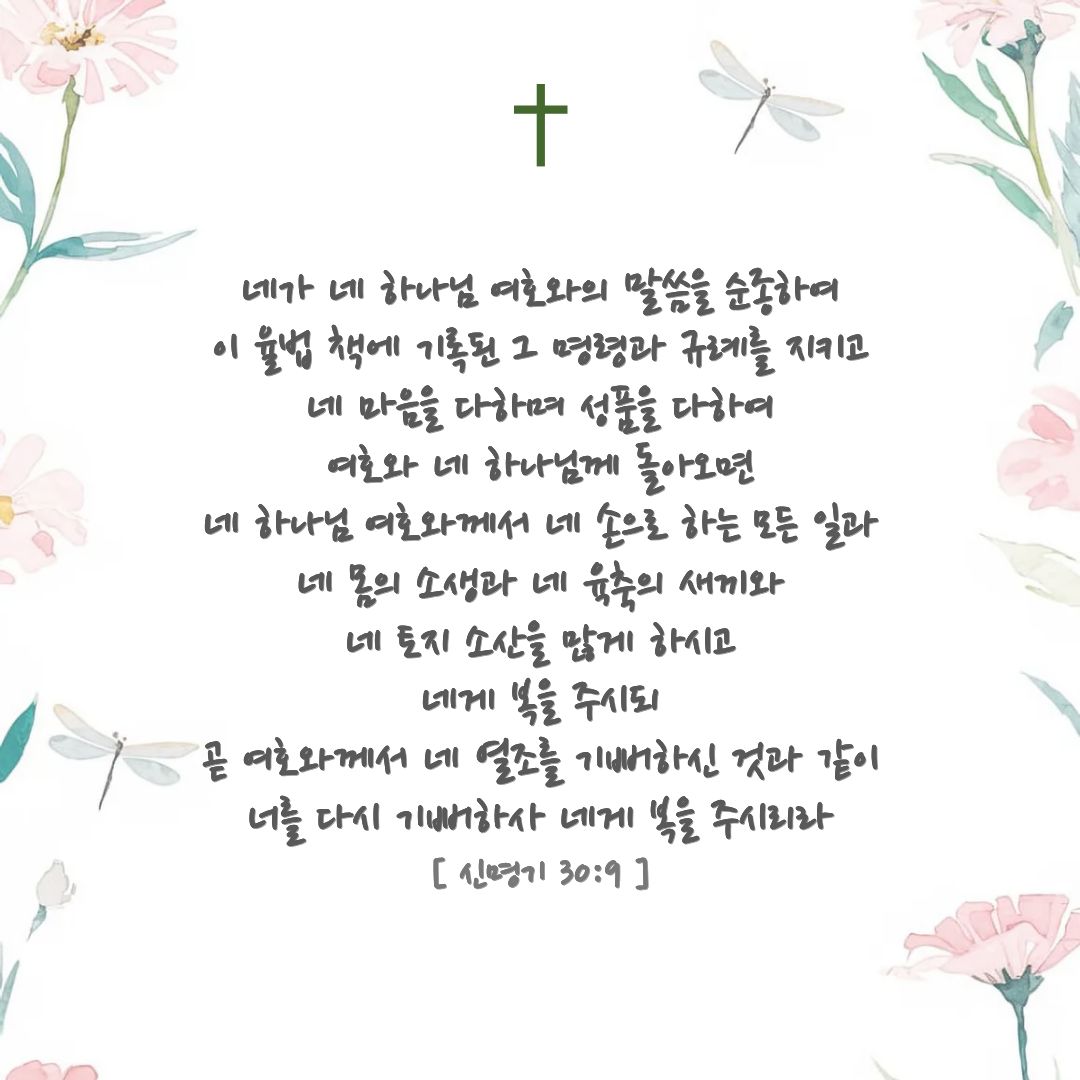 네가 네 하나님 여호와의 말씀을 순종하여
이 율법 책에 기록된 그 명령과 규례를 지키고
네 마음을 다하며 성품을 다하여
여호와 네 하나님께 돌아오면
네 하나님 여호와께서 네 손으로 하는 모든 일과
네 몸의 소생과 네 육축의 새끼와
네 토지 소산을 많게 하시고
네게 복을 주시되
곧 여호와께서 네 열조를 기뻐하신 것과 같이
너를 다시 기뻐하사 네게 복을 주시리라
[ 신명기 30:9 ]